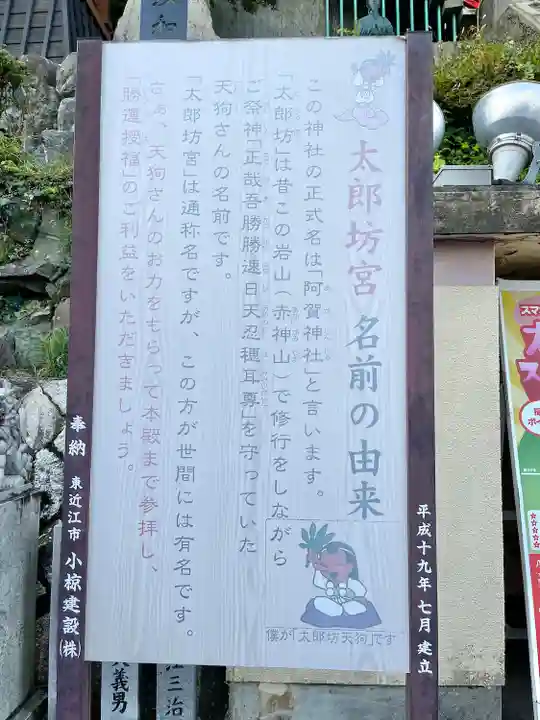 太郎坊宮 名前の由来
この神社の正式名は「阿賀神社」と言います。
「太郎坊」は昔この岩山(赤神山)で修行をしながら
ご祭神「正哉吾勝勝速日天忍穂耳尊」を守っていた
天狗さんの名前です。
「太郎坊宮」は通称名ですが、この方が世間には有名です。
さぁ、天狗さんのお力をもらって本殿まで参拝し、
「勝運授福」のご利益をいただきましょう。
僕が「太郎坊天狗」です
平成十九年七月 建立
奉納 東近江市 小椋建設(株)
義男
三治